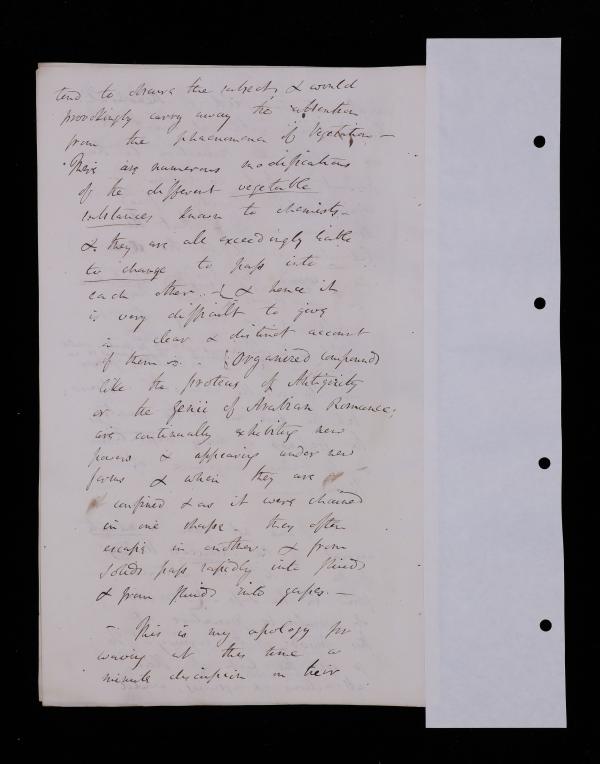 tend to obscure the subject, & would
provokingly carry away the attention
from the phaenomena of Vegetation –
There are numerous modifications
of the different vegetable
substances known to chemists –
& they are all exceedingly liable
to change to pass into
each other. – { & hence it
is very difficult to give
a clear & distinct account
of them – { Organized compounds
like the proteus of Antiquity
or the genii of Arabian Romance;
are continually exhibiting new
powers & appearing under new
forms & when they are
confined & as it were chained
in one shape – they often
escape in another. & from
solids pass rapidly into fluids
& from fluids into gasses. –
– This is my apology for
waving at this time a
minute discussion on their